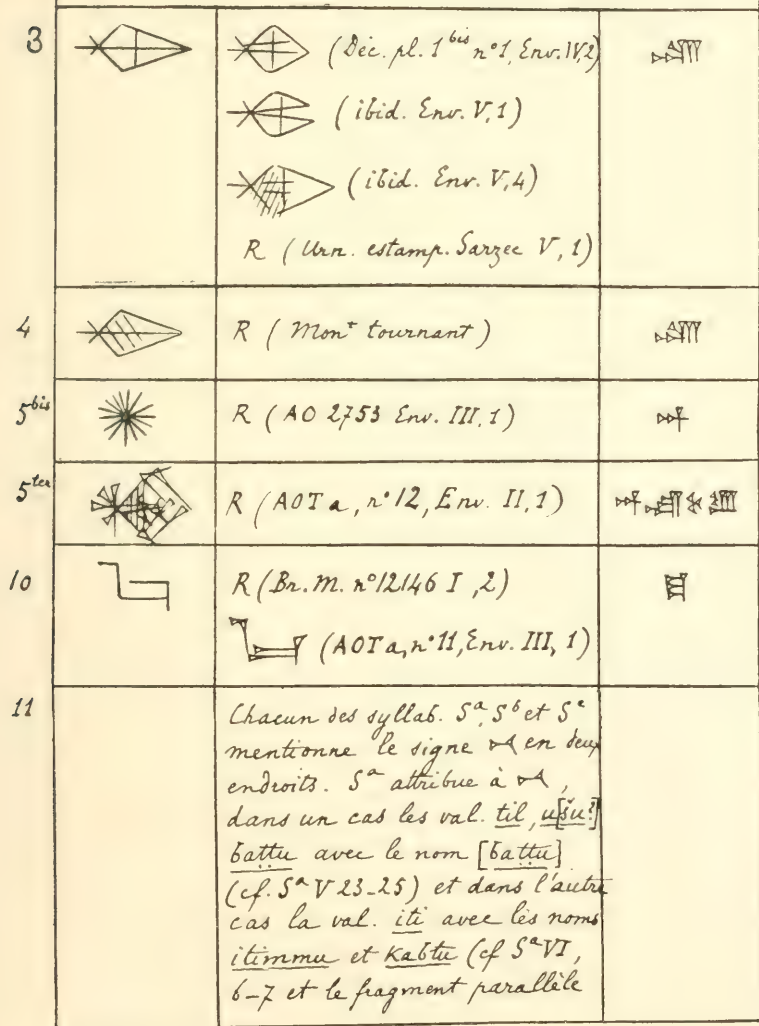 3 (Déc. pl. 1 bis n°1, Env. IV, 2)
(ibid. Env. V, 1)
(ibid. Env. V, 4)
R (Urn. estamp. Sarzec V, 1)
4 R (Mont tournant)
5 bis R (AO 2753 Env. III, 1)
5 ter R (AOTa, n°12, Env. II, 1)
10 R (Br. M. n°12146 I, 2)
(AOTa, n°11, Env. III, 1)
11 Chacun des syllab. Sa, Sb et Sc
mentionne le signe 𒁁 en deux
endroits. Sa attribue à 𒁁,
dans un cas les val. til, u[šu?]
baṭṭu avec le nom [baṭṭu]
(cf. Sa V 23-25) et dans l'autre
cas la val. iti avec les noms
itimmu et kabtu (cf Sa VI,
6-7 et le fragment parallèle